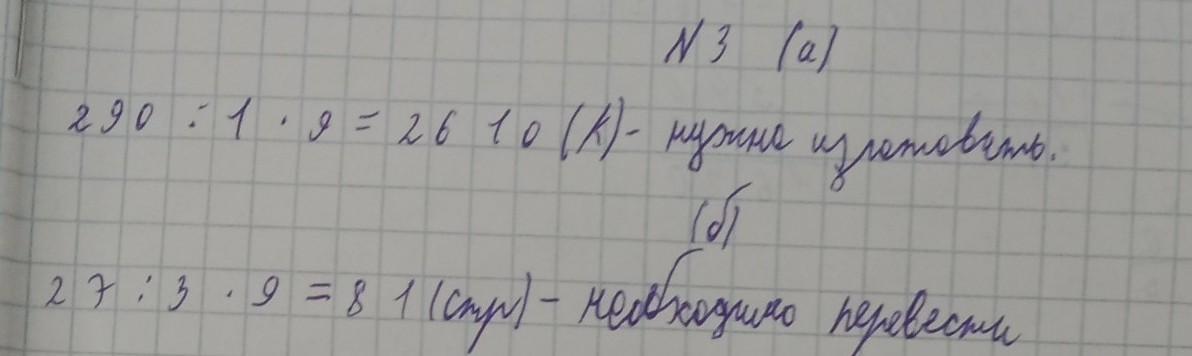 N 3 (а)
290 : 1 · 9 = 2610 (К) - нужно изготовить.
(б)
27 : 3 · 9 = 81 (стр) - необходимо перевести